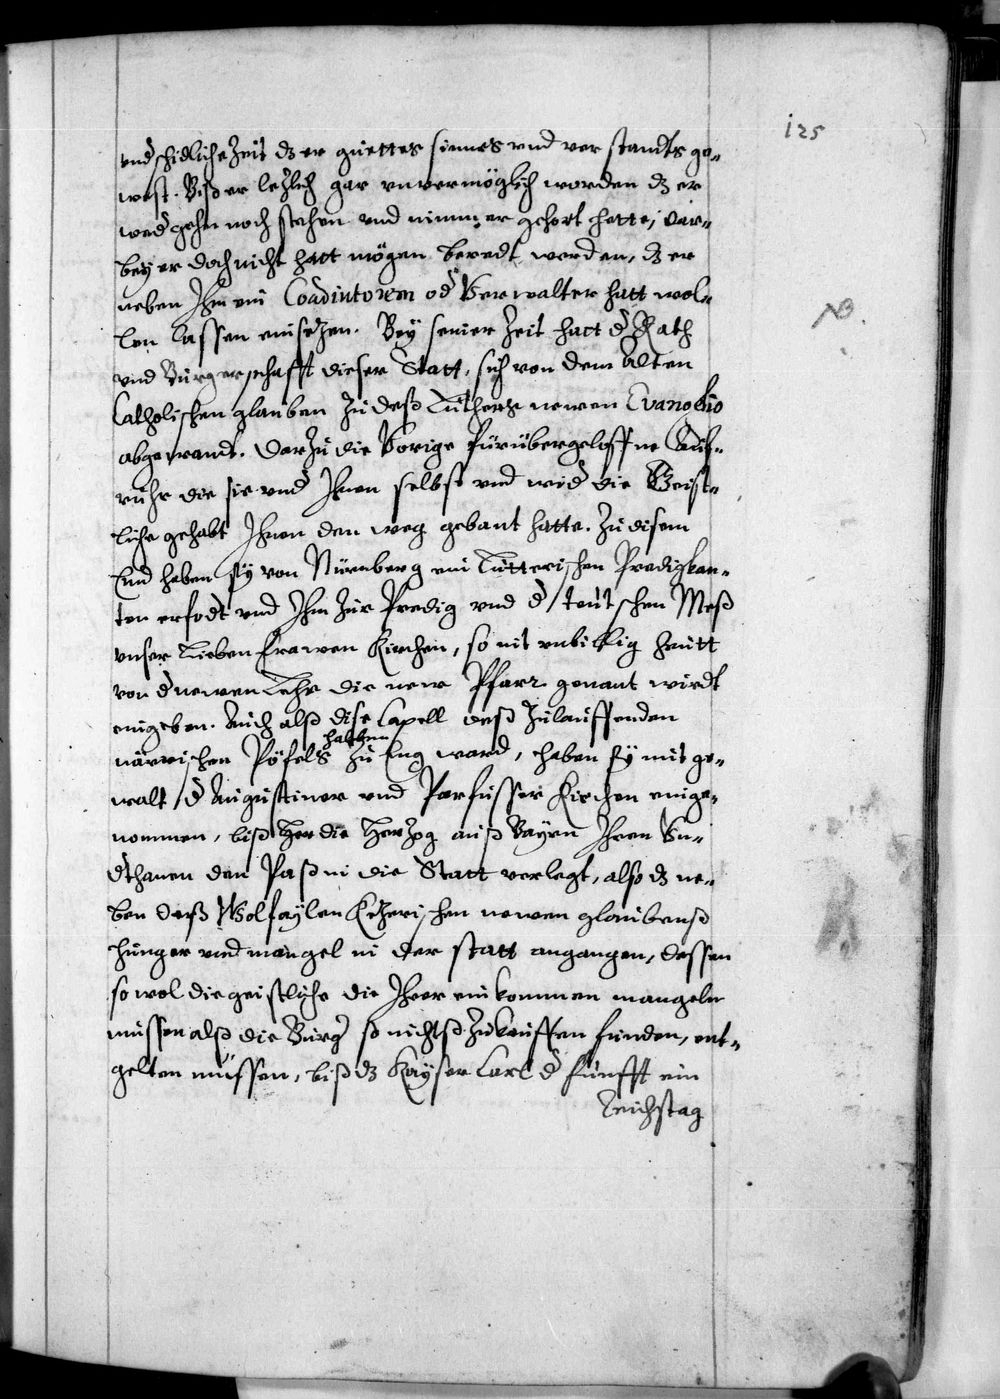 125
vnd schidliche Zeit dz er guettes sinnes vnd verstandts ge-
west. Biß er letzlich gar vnvermöglich worden dz er
wed gehn noch stehen vnd nimmer gehort hette, dar-
bey er doch nicht hatt mögen beredt werden, dz er
neben Ihm ein Coadiutorem od Verwalter hatt wol-
len lassen einsetzen. Bey seiner Zeit hatt d Rath
NB.
vnd Burgerschafft dieser Statt, sich von dem Alten
Catholischen glauben zu deß Luthers newen Evangelio
abgewandt. Darzu die Vorige fürübergeloffne Auf-
ruhr die sie vnd Ihnen selbst vnd wid die Geist-
liche gehabt Ihnen den weg gebant hatte. Zu disem
End haben sy von Nürnberg ein Lutterischen Predigkan-
ten erfodt vnd Ihm zur Predig vnd d teutschen Meß
vnser Lieben frawen Kirchen, so nit vnbillig Zeütt
von d newen Lehr die new Pfarr genant wirdt
eingeben. Auch alß dise Capell deß zulauffenden
närrischen Pöfels halben zu Eng ward, haben sy mit ge-
walt d Augustiner vnd Parfusser Kirchen einge-
nommen, biß Her die Hertzog auß Bayrn Ihren Vn-
dthanen den Paß in die Statt verlegt, also dz ne-
ben deß Wolfaylen Ketzerischen newen glaubenß
hunger vnd mangel in der statt angangen, dessen
so wol die geistliche die Ihrer einkommen mangeln
mussen alß die Burg so nichtß zukauffen funden, ent-
gelten müssen, biß dz Kayser Carl d funfft ein
Reichstag